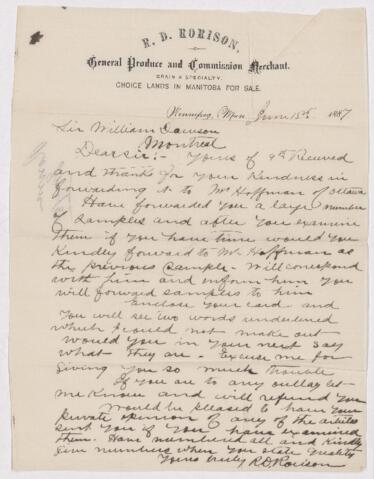 R. D. RORISON,
General Produce and Commission Merchant.
GRAIN A SPECIALTY.
CHOICE LANDS IN MANITOBA FOR SALE.
Winnipeg, Man. June 15th 1887
Sir William Dawson
Montreal
Dear sir:- Yours of 9th Received
and thanks for your Kindness in
forwarding it to Mr Hoffman of Ottawa
Have forwarded you a large number
of samples and after you examine
them if you have time would you
Kindly forward to Mr. Hoffman as
the previous sample - Will correspond
with him and inform him you
will forward samples to him
Enclose your card and
You will see two words underlined
which I could not make out
would you in your next say
what they are - Excuse me for
giving you so much trouble
If you are to any outlay let
me Know and will refund you
Would be pleased to have your
private opinion of any of the articles
sent you if you have examined
them. Have numbered all and Kindly
give numbers when you state quality
Yours truly R.D. Rorison